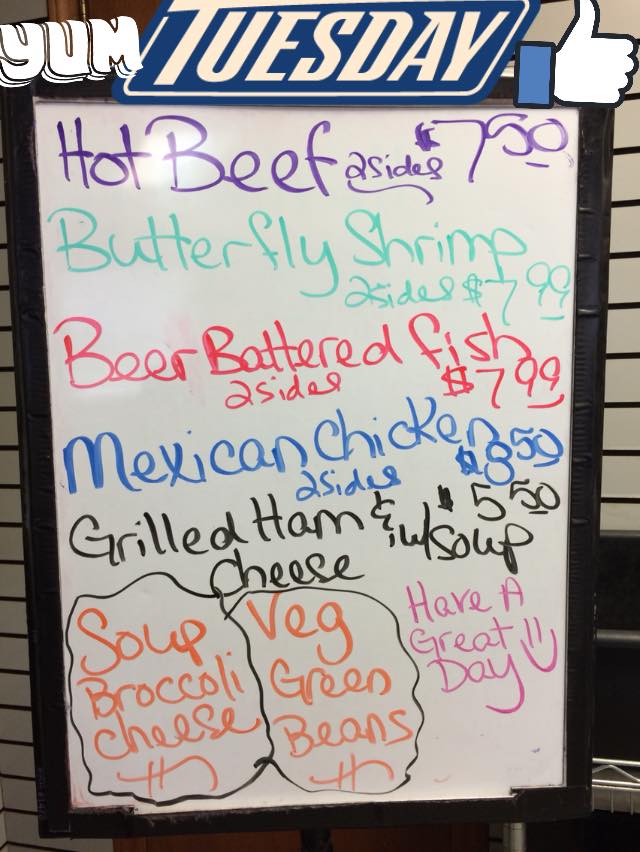 YUM TUESDAY
Hot Beef 2sides $7.50
Butterfly Shrimp
2sides $7.99
Beer Battered fish
2sides $7.99
Mexican Chicken
2sides $8.50
Grilled Ham & Cheese w/soup $5.50
Soup
Broccoli
Cheese
Veg
Green
Beans
Have A
Great
Day